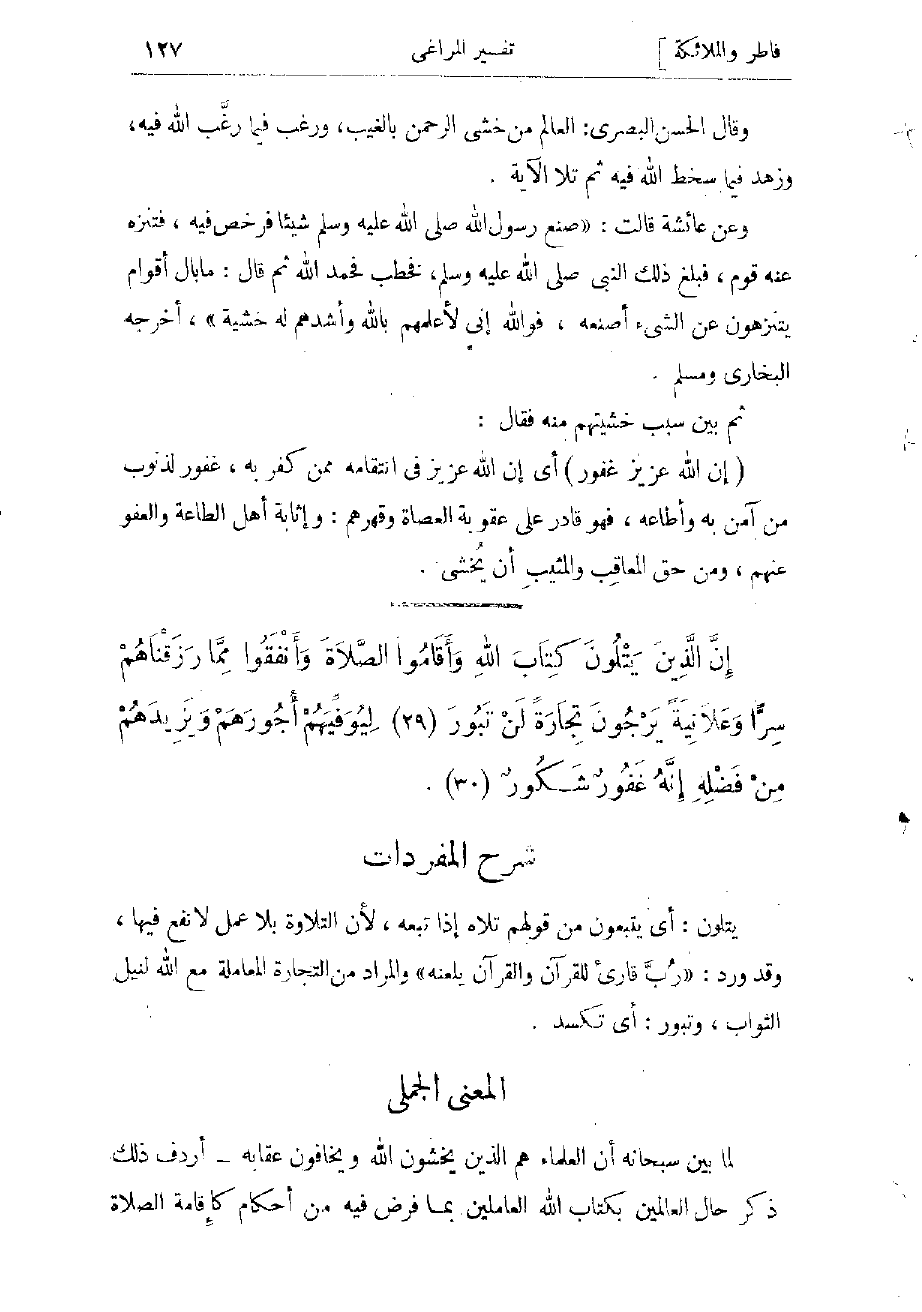 فاطر والملائكة ] تفسير المراغى ١٢٧
وقال الحسن البصرى: العالم من خشى الرحمن بالغيب، ورغب فيما رغَّب الله فيه،
وزهد فيما سخط الله فيه ثم تلا الآية .
وعن عائشة قالت : «صنع رسول الله صلى الله عليه وسلم شيئا فرخص فيه ، فتنزه
عنه قوم ، فبلغ ذلك النبى صلى الله عليه وسلم، فخطب فحمد الله ثم قال : مابال أقوام
يتنزهون عن الشىء أصنعه ، فوالله إنى لأعلمهم بالله وأشدهم له خشية » ، أخرجه
البخارى ومسلم .
ثم بين سبب خشيتهم منه فقال :
( إن الله عزيز غفور ) أى إن الله عزيز فى انتقامه ممن كفر به ، غفور لذنوب
من آمن به وأطاعه ، فهو قادر على عقوبة العصاة وقهرهم : وإثابة أهل الطاعة والعفو
عنهم ، ومن حق المعاقِب والمثيبِ أن يُخشى .
إِنَّ الَّذِينَ يَتْلُونَ كِتَابَ اللهِ وَأَقَامُوا الصَّلاَةَ وَأَنْفَقُوا مِمَّا رَزَقْنَاهُمْ
سِرًّا وَعَلاَنِيَةً يَرْجُونَ تِجَارَةً لَنْ تَبُورَ (٢٩) لِيُوَفِّيَهُمْ أُجُورَهَمْ وَيَزِيدَهُمْ
مِنْ فَضْلِهِ إِنَّهُ غَفُورٌ شَكُورٌ (٣٠) .
شرح المفردات
يتلون : أى يتبعون من قولهم تلاه إذا تبعه ، لأن التلاوة بلا عمل لا نفع فيها ،
وقد ورد : «رُبَّ قارئ للقرآن والقرآن يلعنه» والمراد من التجارة المعاملة مع الله لنيل
الثواب ، وتبور : أى تكسد .
المعنى الجملى
لما بين سبحانه أن العلماء هم الذين يخشون الله ويخافون عقابه – أردف ذلك
ذكر حال العالمين بكتاب الله العاملين بما فرض فيه من أحكام كإقامة الصلاة